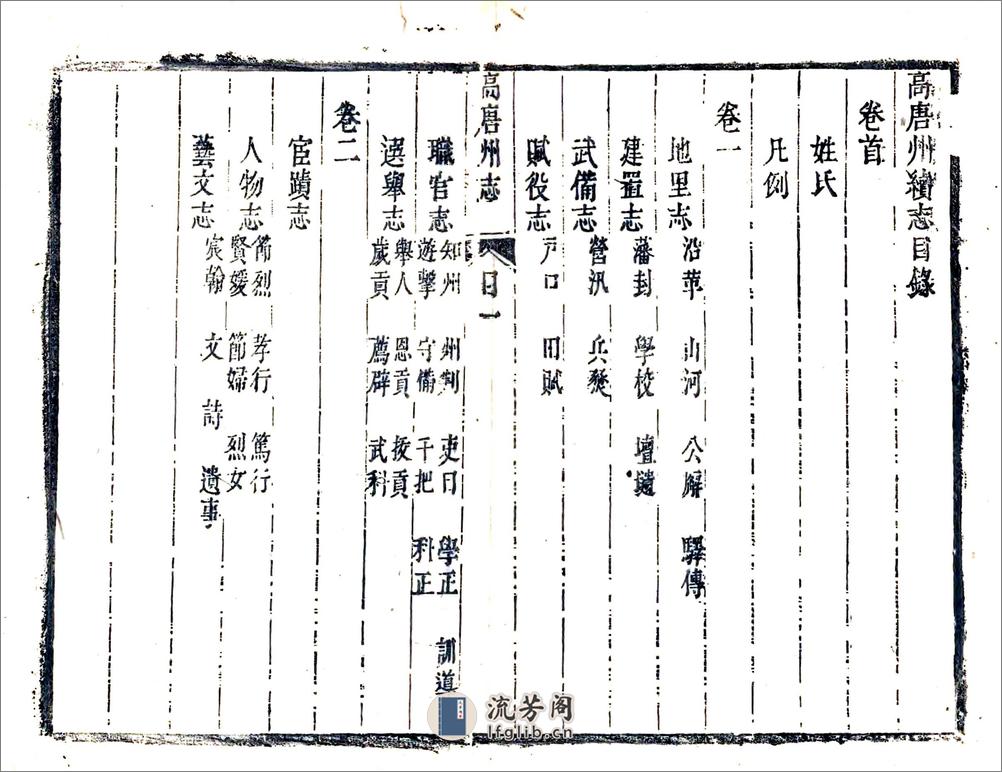 高唐州續志目錄
卷首
姓氏
凡例
卷一
地里志 沿革 山河 公廨 驛傳
建置志 藩封 學校 壇壝
武備志 營汛 兵燹
賦役志 戶口 田賦
高唐州志 目一
職官志 知州 州判 吏目 學正 訓道
遊擊 守備 千把 科正
選舉志 舉人 恩貢 拔貢
歲貢 薦辟 武科
卷二
宦蹟志
人物志 節烈 孝行 篤行
賢媛 節婦 烈女
藝文志 宸翰 文 詩 遺事
流芳阁
lfglib.cn